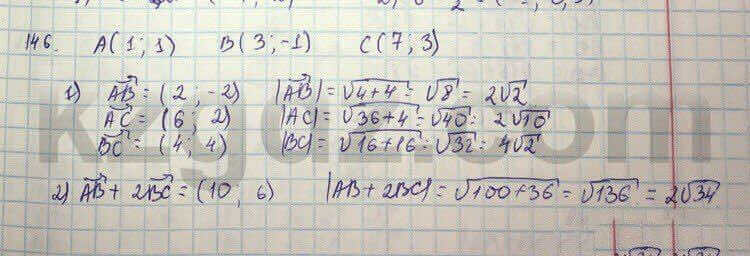 146. A(1; 1) B(3; -1) C(7; 3)
1) AB = (2; -2) |AB| = √4+4 = √8 = 2√2
AC = (6; 2) |AC| = √36+4 = √40 = 2√10
BC = (4; 4) |BC| = √16+16 = √32 = 4√2
2) AB + 2BC = (10; 6) |AB + 2BC| = √100+36 = √136 = 2√34